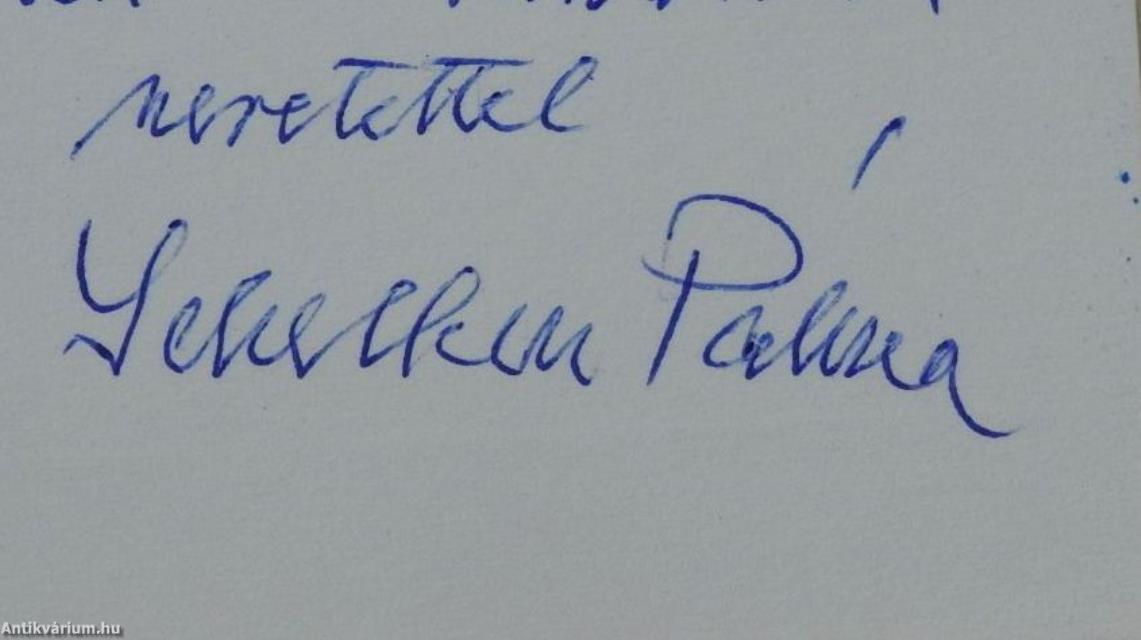 szeretettel
Schelken Pálma
Antikvárium.hu